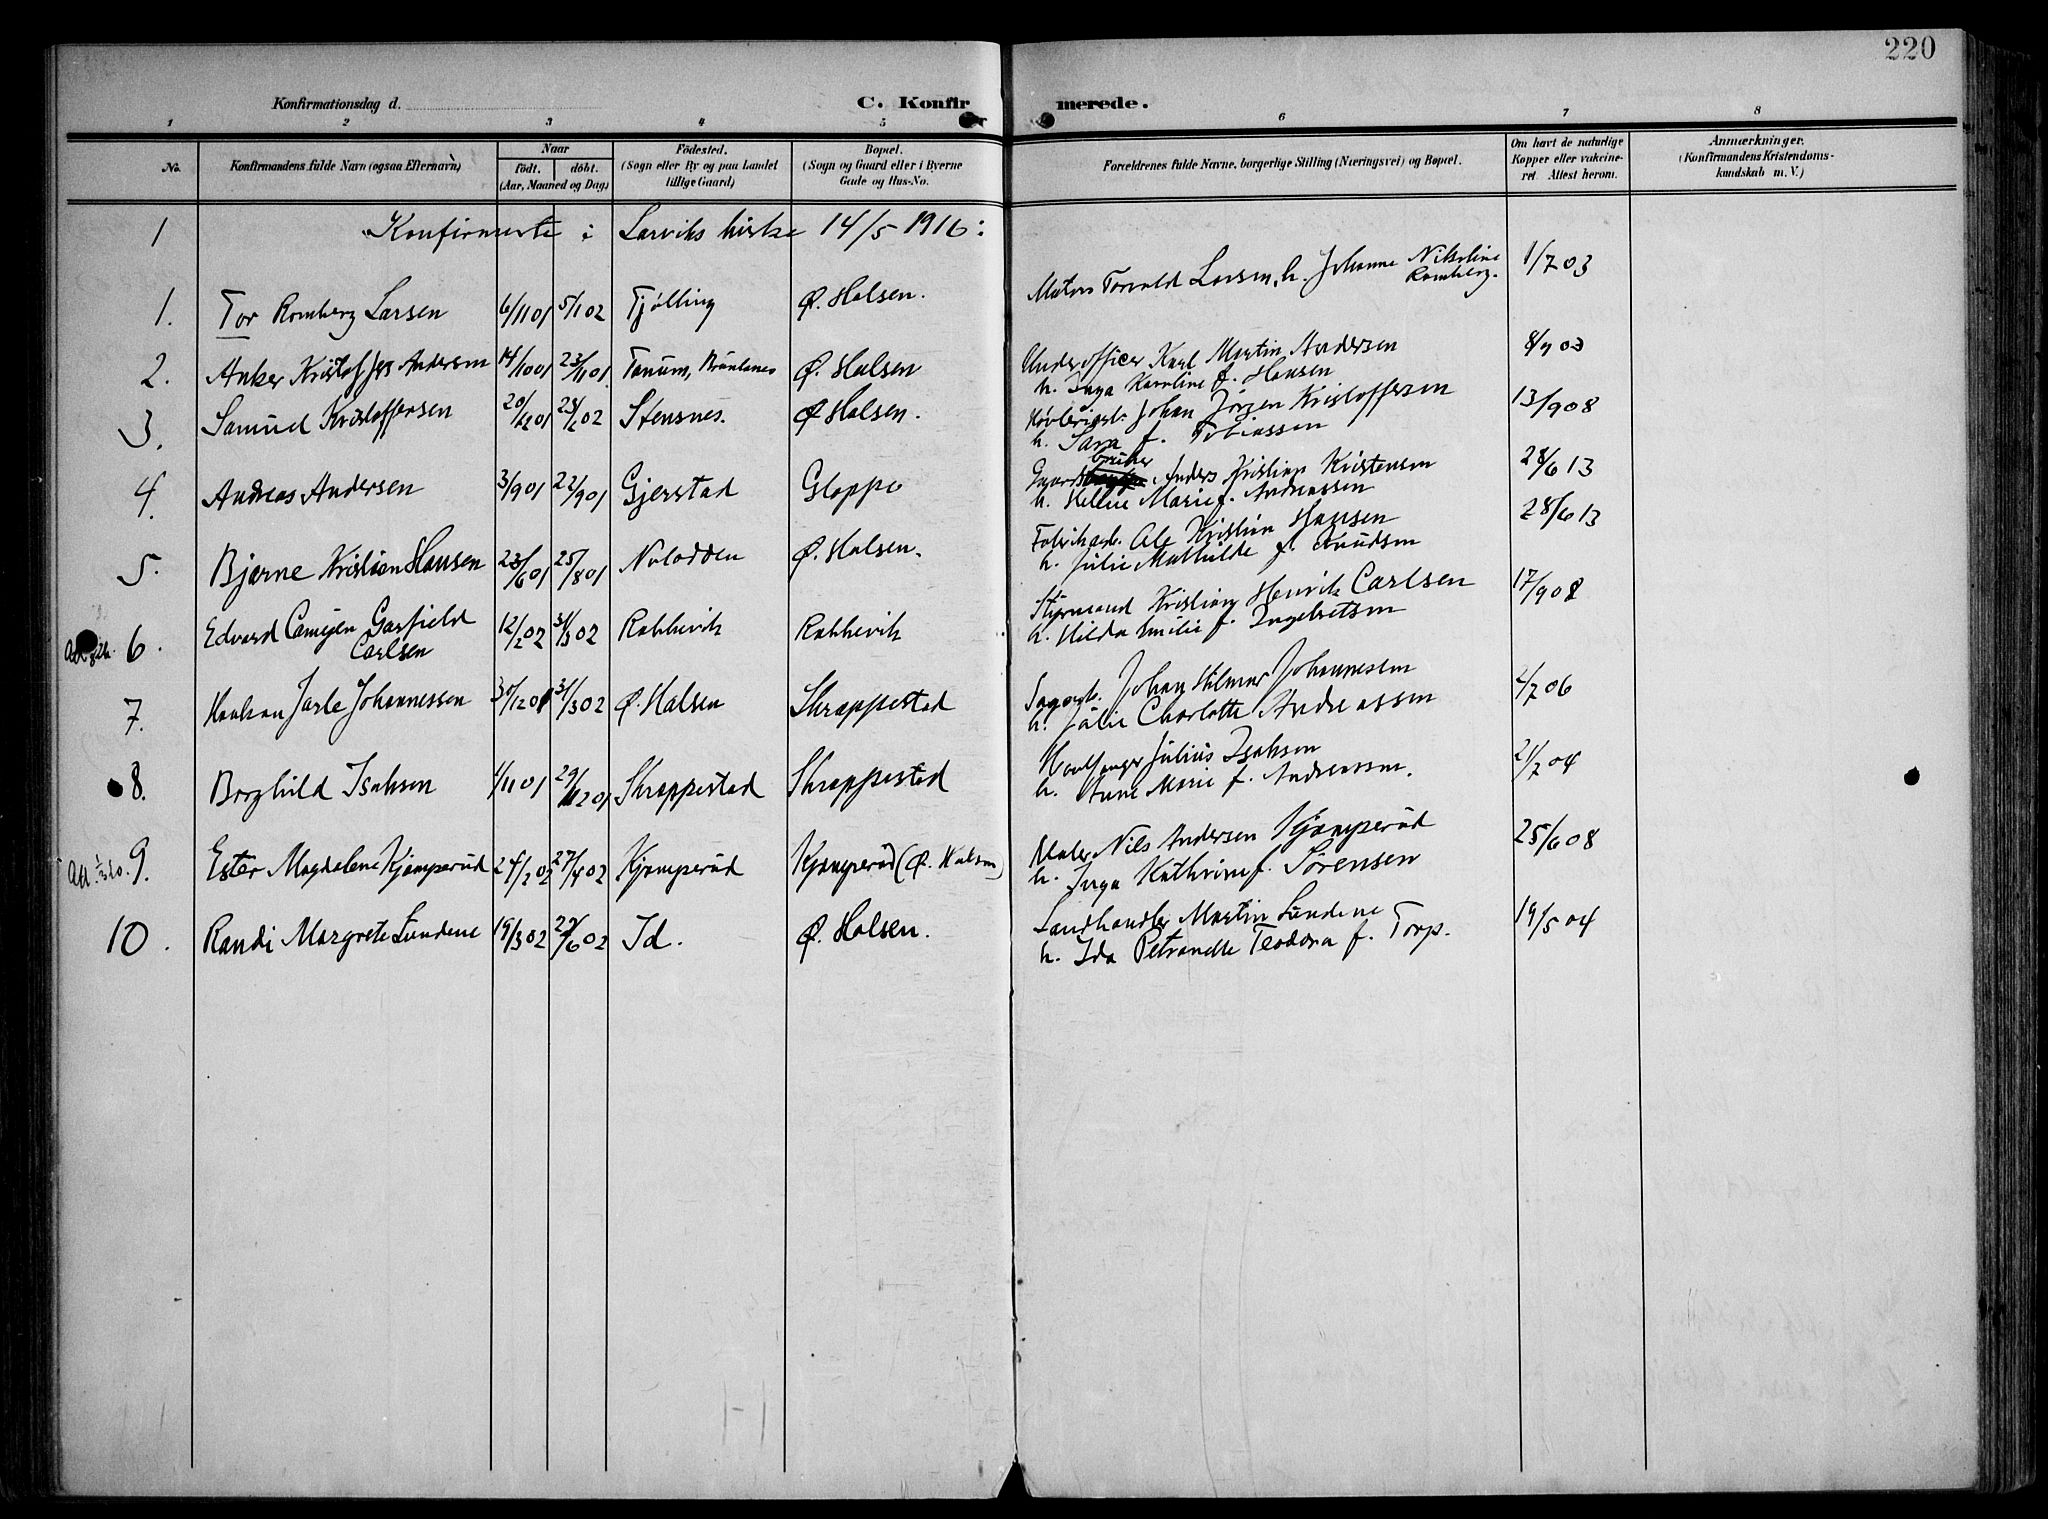 220
Konfirmationsdag d. C. Konfirmerede.
1 2 3 4 5 6 7 8
No. Konfirmandens fulde Navn (ogsaa Efternavn) Naar født. døbt. (Aar, Maaned og Dag) Fødested. (Sogn eller By og paa Landet tillige Gaard) Bopæl. (Sogn og Gaard eller i Byerne Gade og Hus-No. Forældrenes fulde Navne, borgerlige Stilling (Næringsvei) og Bopæl. Om havt de naturlige Kopper eller vakcineret. Attest herom. Anmærkninger. (Konfirmandens Kristendomskundskab m. V.)
1 Konfirmerte i Larviks kirke 14/5 1916:
1. Tor Romberg Larsen 6/11 01 5/1 02 Tjølling Ø. Halsen. Torvald Larsen, h. Johanne Nikoline Romberg. 1/7 03
2. Anker Kristoffer Andersen 14/10 01 23/11 01 Tanum, Brunlanes Ø. Halsen Underofficer Karl Martin Andersen
h. Inga Karoline f. Hansen 8/9 03
3. Samuel Kristoffersen 20/12 01 02 Stensnes. Ø Halsen. Johan Jörgen Kristoffersen
h. Sara f. Tobiassen 13/9 08
4. Andreas Andersen 3/9 01 22/9 01 Gjerstad Gloppe Gaardbruker Anders Kristian Kristensen
h. Helene Marie f. Andreassen 28/6 13
5. Bjarne Kristian Hansen 23/6 01 25/8 01 Notodden Ø. Halsen. Fabrikarb. Ole Kristian Hansen
h. Julie Mathilde f. Knudsen 28/6 13
6. Edvard Garfield Carlsen 12/2 02 31/3 02 Rakkevik Rakkevik Styrmand Kristian Henrik Carlsen
h. Hilda Emilie f. Ingebretsen 17/9 08
7. Haakon Jarle Johannessen 30/12 01 31/3 02 Ø. Halsen Skrappestad Johan Hilmar Johannessen
h. Julie Charlotte Andreassen 2/7 06
8. Borghild Isaksen 1/11 01 29/12 01 Skrappestad Skrappestad Hvalfanger Julius Isaksen
h. Anne Marie f. Andreassen. 2/7 04
9. Ester Magdelene Kjæmperud 24/2 02 27/4 02 Kjæmperud Kjæmperud (Ø. Halsen) Maler Nils Andersen Kjæmperud
h. Inga Kathrine f. Sørensen 25/6 08
10. Randi Margrete Lundene 19/3 02 22/6 02 Id. Ø. Halsen. Landhandler Martin Lundene
h. Ida Petronelle Teodora f. Torp. 19/5 04